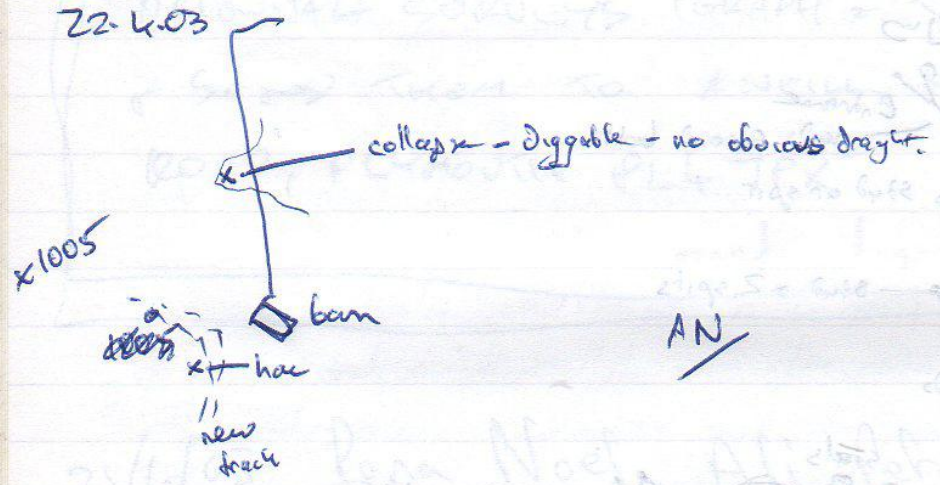 22.4.03
collapse - Diggable - no obvious draght.
x1005
barn
AN
x hole
new
track